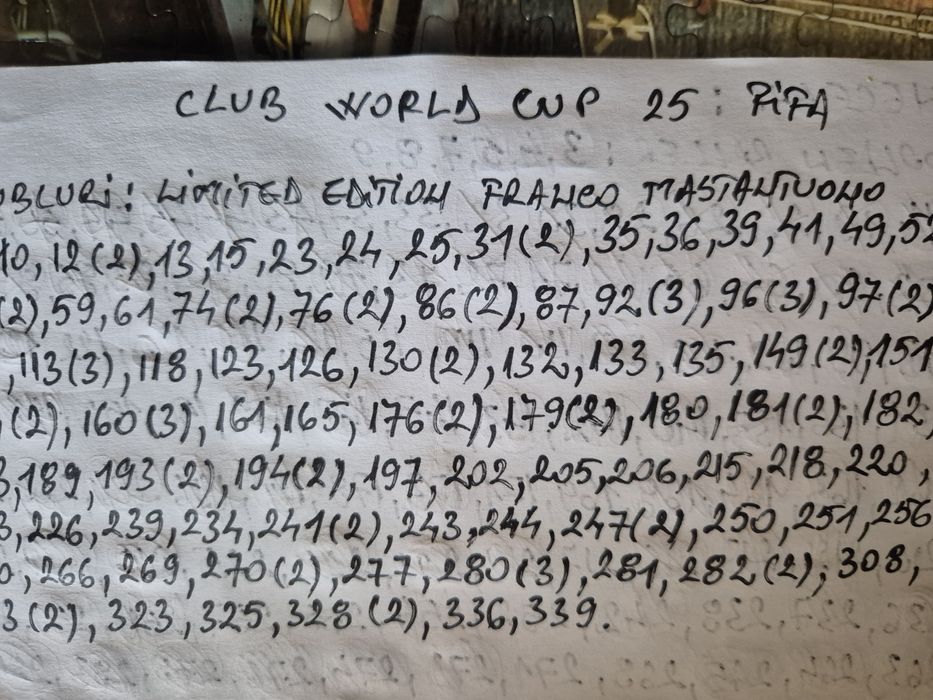 CLUB WORLD CUP 25: FIFA
BLURI: LIMITED EDITION FRANCO MASTANTUONO
10, 12(2), 13, 15, 23, 24, 25, 31(2), 35, 36, 39, 41, 49, 52
(2), 59, 61, 74(2), 76(2), 86(2), 87, 92(3), 96(3), 97(2)
, 113(3), 118, 123, 126, 130(2), 132, 133, 135, 149(2), 151
(2), 160(3), 161, 165, 176(2), 179(2), 180, 181(2), 182,
3, 189, 193(2), 194(2), 197, 202, 205, 206, 215, 218, 220,
3, 226, 239, 234, 241(2), 243, 244, 247(2), 250, 251, 256
0, 266, 269, 270(2), 277, 280(3), 281, 282(2), 308,
3(2), 323, 325, 328(2), 336, 339.